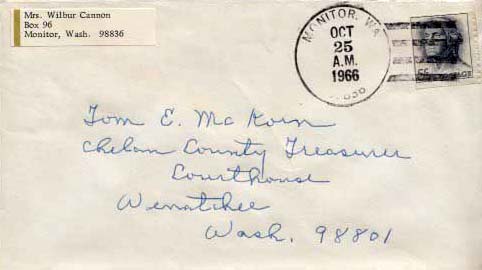 Mrs. Wilbur Cannon
Box 96
Monitor, Wash. 98836
MONITOR, WA
OCT
25
A.M.
1966
5¢
Tom E. McKorn
Chelan County Treasurer
Courthouse
Wenatchee
Wash. 98801